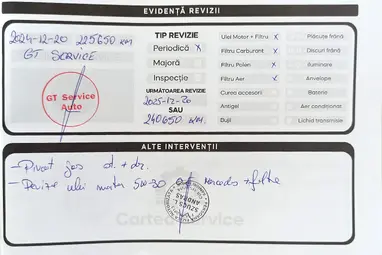 EVIDENȚĂ REVIZII
2024-12-20 225650 km
GT SERVICE
GT Service
Auto
TIP REVIZIE
Periodică x
Majoră
Inspecție
URMĂTOAREA REVIZIE
2025-12-20
SAU
240650 km.
Ulei Motor + Filtru x
Filtru Carburant x
Filtru Polen x
Filtru Aer x
Curea accesorii
Antigel
Bujii
Plăcuțe frână
Discuri frână
Iluminare
Anvelope
Baterie
Aer condiționat
Lichid transmisie
ALTE INTERVENȚII
- Pivot jos d. + dr.
- Revizie ulei motor 5w-30 mercedes + filtre
SZUCS L.
ANDRAS
Carte Service